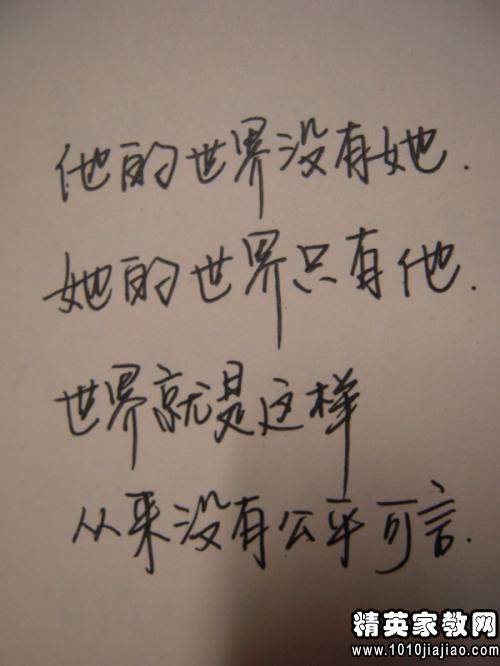 他的世界没有她.
她的世界只有他.
世界就是这样
从来没有公平可言.
精英家教网
www.1010jiajiao.com